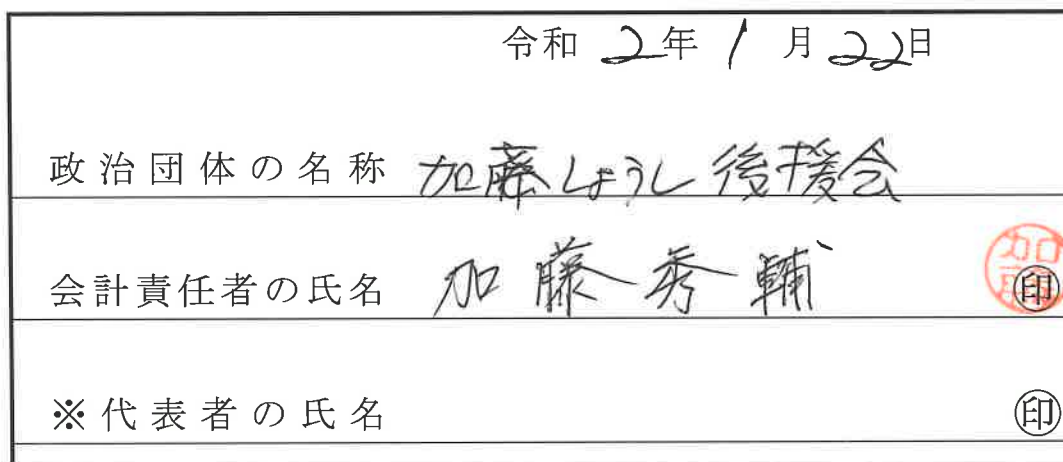 令和 2年 1 月 22日
政治団体の名称 加藤しょうし後援会
会計責任者の氏名 加藤秀輔 加藤 ㊞
※代表者の氏名 ㊞